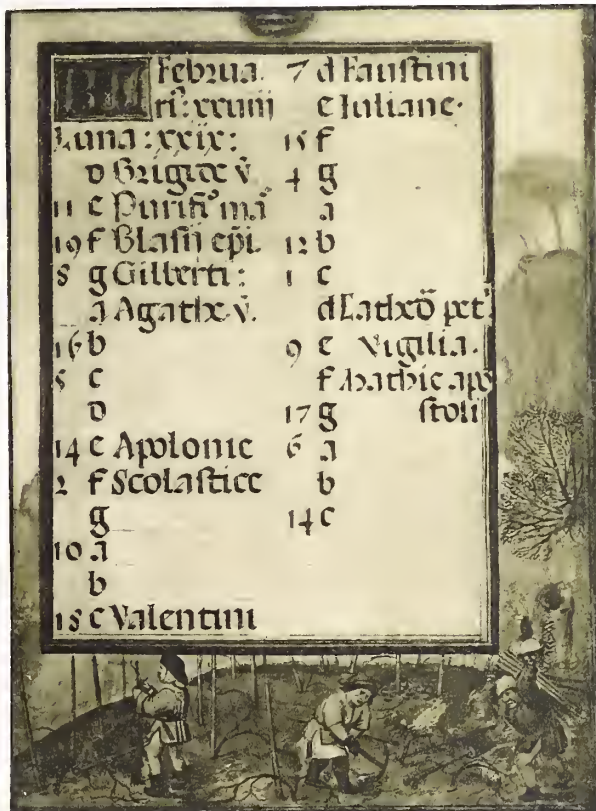 KL Februa.
ri⁹: xxviij
Luna: xxix:
d Brigide v̄.
11 e Purifi° ma͞
19 f Blasij ep̄i.
8 g Gilberti:
a Agathe v̄.
16 b
5 c
d
14 e Apolonie
2 f Scolastice
g
10 a
b
18 c Valentini
7 d Faustini
e Iuliane.
15 f
4 g
a
12 b
1 c
d Cathed̄ pet͛
9 e Vigilia.
f Mathie apo
17 g stoli
6 a
b
14 c